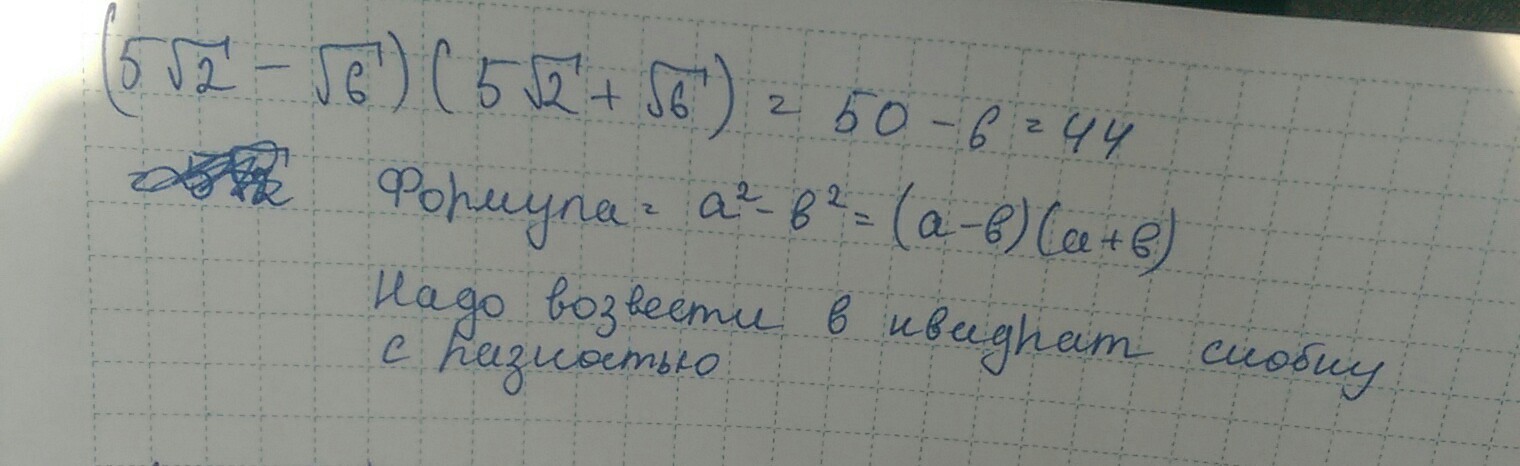 (5√2 - √6)(5√2 + √6) = 50 - 6 = 44
Формула = a² - в² = (a - в)(a + в)
Надо возвести в квадрат скобку
с разностью